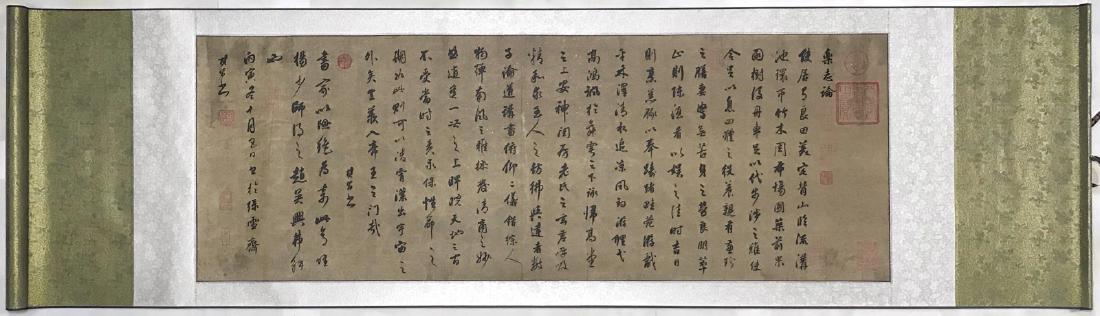 樂志論
使居有良田美宅背山臨流溝
池環帀竹木周布場圃築前果
園樹後舟車足以代步涉之難使
令足以息四體之役養親有兼珍
之膳妻孥無苦身之勞良朋萃
止則陳酒肴以娛之佳時吉日
則烹羔豚以奉躊躇畦苑游戲
平林濯清水追涼風釣游鯉弋
高鴻諷於舞雩之下詠歸高堂
之上安神閨房老氏之玄虛呼吸
精和求至人之彷彿與達者數
子論道講書俯仰二儀錯綜人
物彈南風之雅操發清商之妙
逍遙一世之上睥睨天地之間
不受當時之責永保性命之
期如此則可以凌霄漢出宇宙之
外矣豈羨入帝王之門哉
其昌書
書家以險絕為奇此竅惟
楊少師得之趙吳興弗解
也
丙寅年十月日書於綠雪齋
其昌書